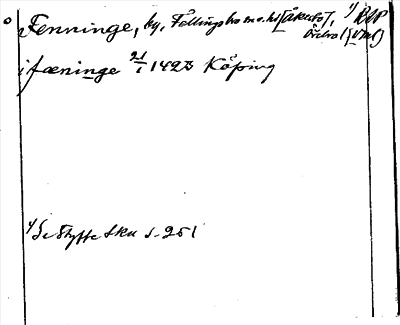 Fenninge, by, Fellingsbro s:n o. hd [Åkerbo], 1) RAP
Örebro l. (Vml)
i fæninge 21/1 1423 Köping
1) Se Styffe Sku s. 251